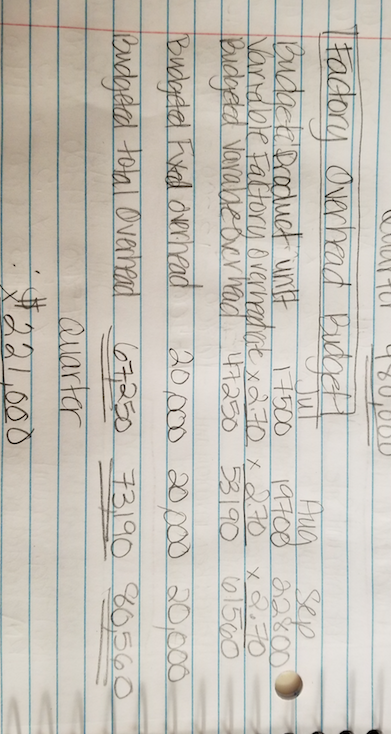 80,000
Factory Overhead Budget
Ju Aug Sep
Budget Product unit 17500 19700 22800
Variable Factory Overhead x 2.70 x 2.70 x 2.70
Budgeted Variable overhead 47250 53190 61560
Budgeted Fixed overhead 20,000 20,000 20,000
Budgeted total Overhead 67250 73190 80,560
Quarter
$221,000